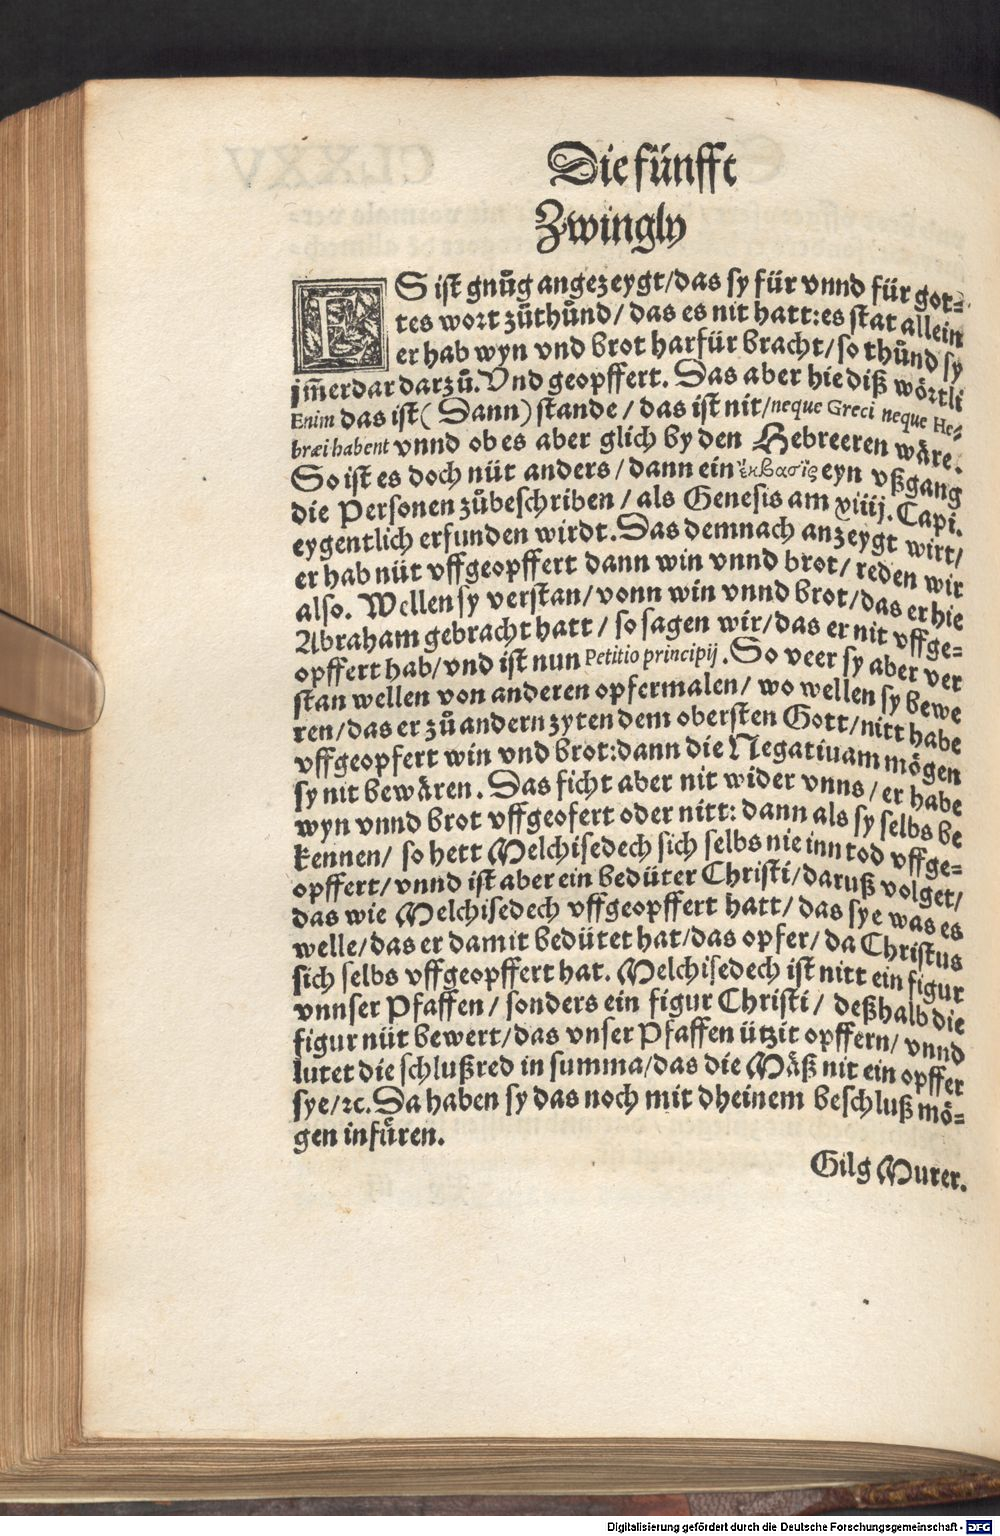 Die fünfft
Zwingly
ES ist gnůg angezeygt/das sy für vnnd für got-
tes wort zůthůnd/ das es nit hatt:es stat allein
er hab wyn vnd brot harfür bracht/so thůnd sy
jm̃erdar darzů. Vnd geopffert. Das aber hie diß wörtli
Enim das ist( Dann) stande / das ist nit/neque Greci neque He-
bræi habent vnnd ob es aber glich by den Hebreeren wäre.
So ist es doch nüt anders/ dann ein ἐκβασὶς eyn vßgang
die Personen zůbeschriben / als Genesis am xiiij. Capi.
eygentlich erfunden wirdt. Das demnach anzeygt wirt/
er hab nüt vffgeopffert dann win vnnd brot/ reden wir
also. Wellen sy verstan/ vonn win vnnd brot/das er hie
Abraham gebracht hatt / so sagen wir/das er nit vffge-
opffert hab/vnd ist nun Petitio principij. So veer sy aber ver
stan wellen von anderen opfermalen/ wo wellen sy bewe
ren/das er zů andern zyten dem obersten Gott/nitt habe
vffgeopfert win vnd brot:dann die Negatiuam mögen
sy nit bewären. Das ficht aber nit wider vnns / er habe
wyn vnnd brot vffgeofert oder nitt: dann als sy selbs be
kennen/ so hett Melchisedech sich selbs nie inn tod vffge-
opffert/vnnd ist aber ein bedüter Christi/daruß volget/
das wie Melchisedech vffgeopffert hatt/ das sye was es
welle/das er damit bedütet hat/das opfer/ da Christus
sich selbs vffgeopffert hat. Melchisedech ist nitt ein figur
vnnser Pfaffen/ sonders ein figur Christi/ deßhalb die
figur nüt bewert/das vnser Pfaffen ützit opffern/ vnnd
lutet die schlußred in summa/das die Mäß nit ein opffer
sye/ꝛc. Da haben sy das noch mit dheinem beschluß mö-
gen infůren.
Gilg Murer.
Digitalisierung gefördert durch die Deutsche Forschungsgemeinschaft - DFG